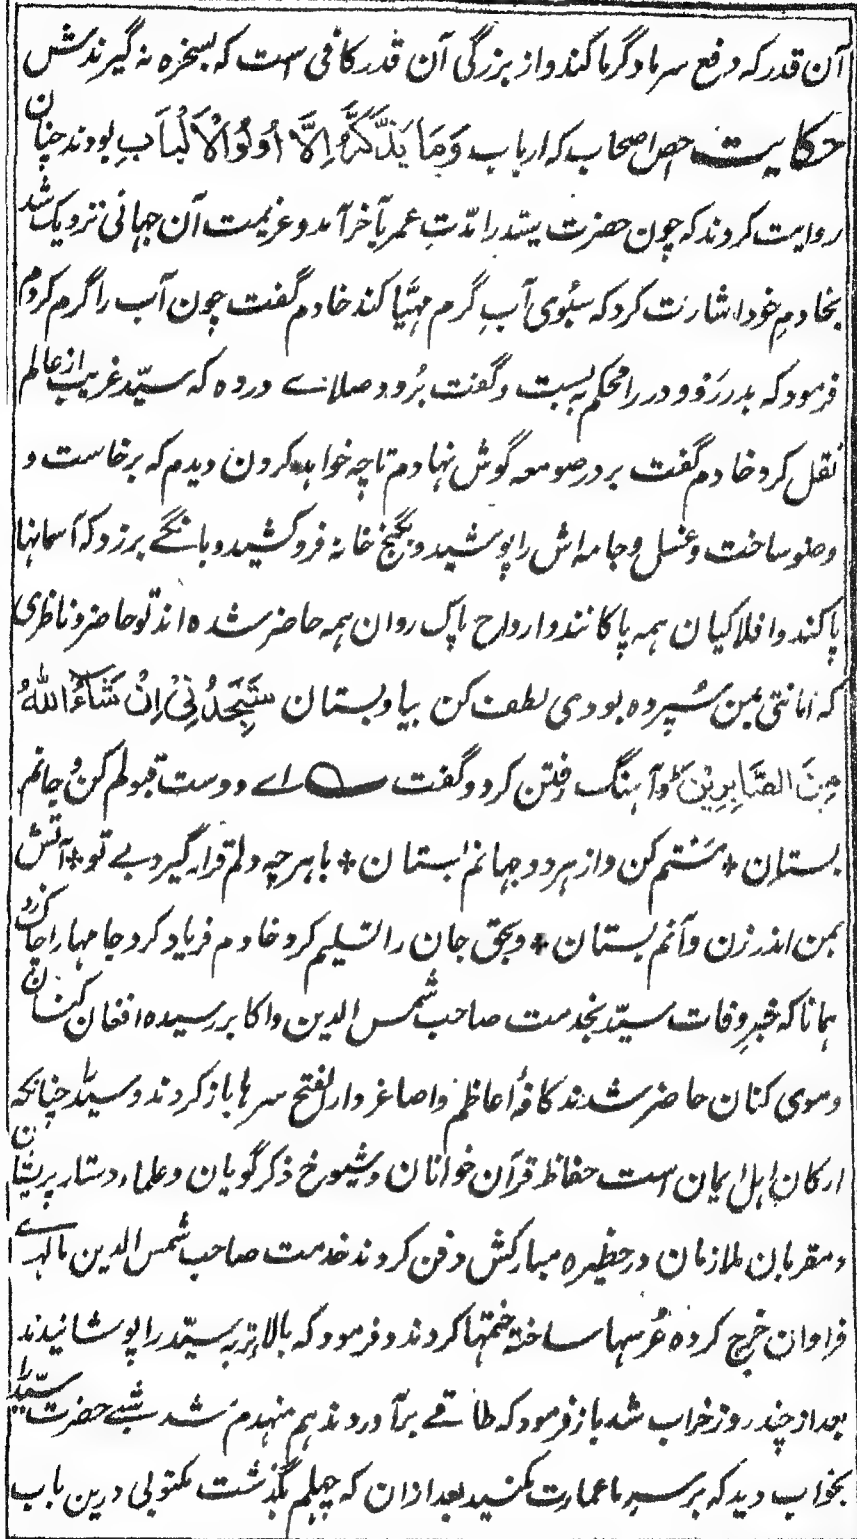 آن قدر که دفع سرما و گرما کند و از بزرگی آن قدر کافی است که بسخره نه گیرندش
حکایت اخص اصحاب که ارباب وَمَا یَذَّکَّرُ اِلَّا اُولُوا الْاَلْبَابِ بودند چنان
روایت کردند که چون حضرت سیّد را مدّتِ عمر بآخر آمد و عزیمت آن جهانی نزدیک شد
بخادمِ خود اشارت کرد که سبُوی آبِ گرم مهیّا کند خادم گفت چون آب را گرم کردم
فرمود که بدر رَوْ و در را محکم به بست و گفت بُرو و صلائے درده که سیّد غریب از عالم
نقل کرد خادم گفت بر در صومعه گوش نهادم تا چه خواهد کردن دیدم که برخاست و
وضو ساخت و غسل و جامه اش را پوشید و بکنج خانه فرو کشید و بانگے برزد که آسمانها
پاکند و افلاکیان همه پاکانند و ارواح پاک روان همه حاضر شده اند تو حاضر و ناظری
که امانتی بمن سُپرده بودی لطف کن بیا و بستان سَتَجِدُنِیْ اِنْ شَآءَ اللّٰهُ
مِنَ الصَّابِرِیْنَ و آهنگ رفتن کرد و گفت اے دوست قبولم کن و جانم
بستان * مستم کن و از هر دو جهانم بستان * با هر چه دلم قرار گیرد بے تو * آتش
بمن اندر زن و آنم بستان * و بحق جان را تسلیم کرد خادم فریاد کرد جامها را چاک زد
همانا که خبرِ وفات سیّد بخدمت صاحب شمس الدین و اکابر رسیده افغان کنان
و موی کنان حاضر شدند کافهٔ اعاظم و اصاغر دار الفتح سرها باز کردند و سیّد را چنانکه
ارکانِ اهل ایمان است حفاظ قرآن خوانان و شیوخ ذکر گویان و علماء دستار پریشان
و مقربان ملازمان در حظیرهٔ مبارکش دفن کردند خدمت صاحب شمس الدین مالهے
فراوان خرچ کرده عُرسها ساخته ختمها کردند و فرمود که بالای تربه سیّد را پوشانیدند
بعد از چند روز خراب شد باز فرمود که طاقے برآوردند هم منهدم شد شبے حضرت سیّد را
بخواب دید که بر سر ما عمارت مکنید بعد ازان که چهلم بگذشت مکتوبی درین باب